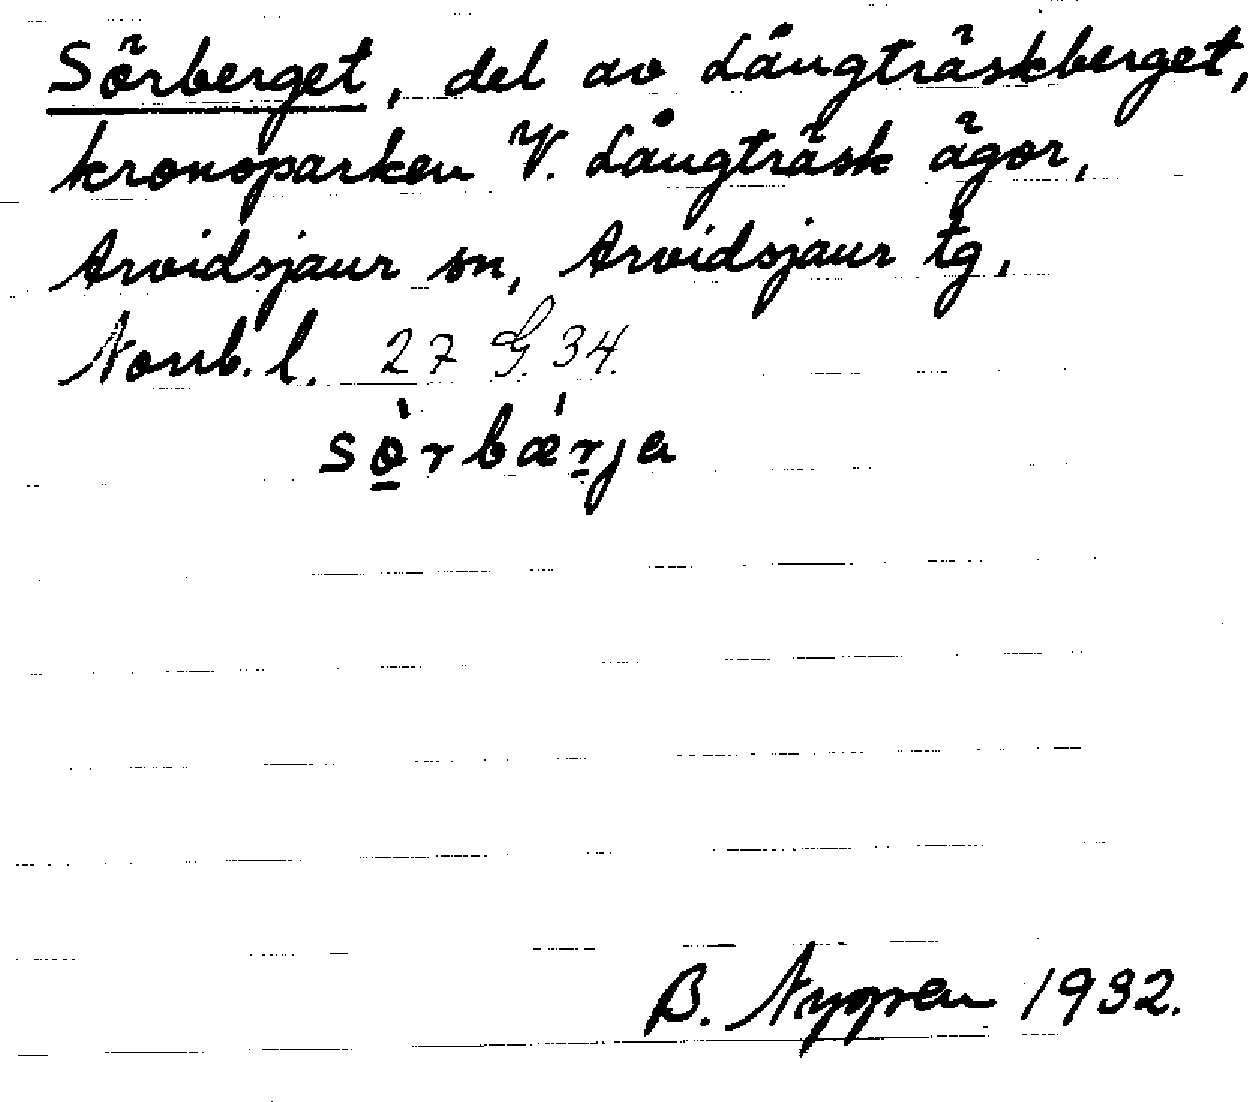 Sörberget, del av Långträskberget,
kronoparken V. Långträsk ägor,
Arvidsjaur sn, Arvidsjaur tg,
Norrb. l. 27 G. 34.
sò̱rbǽṟja
B. Nygren 1932.